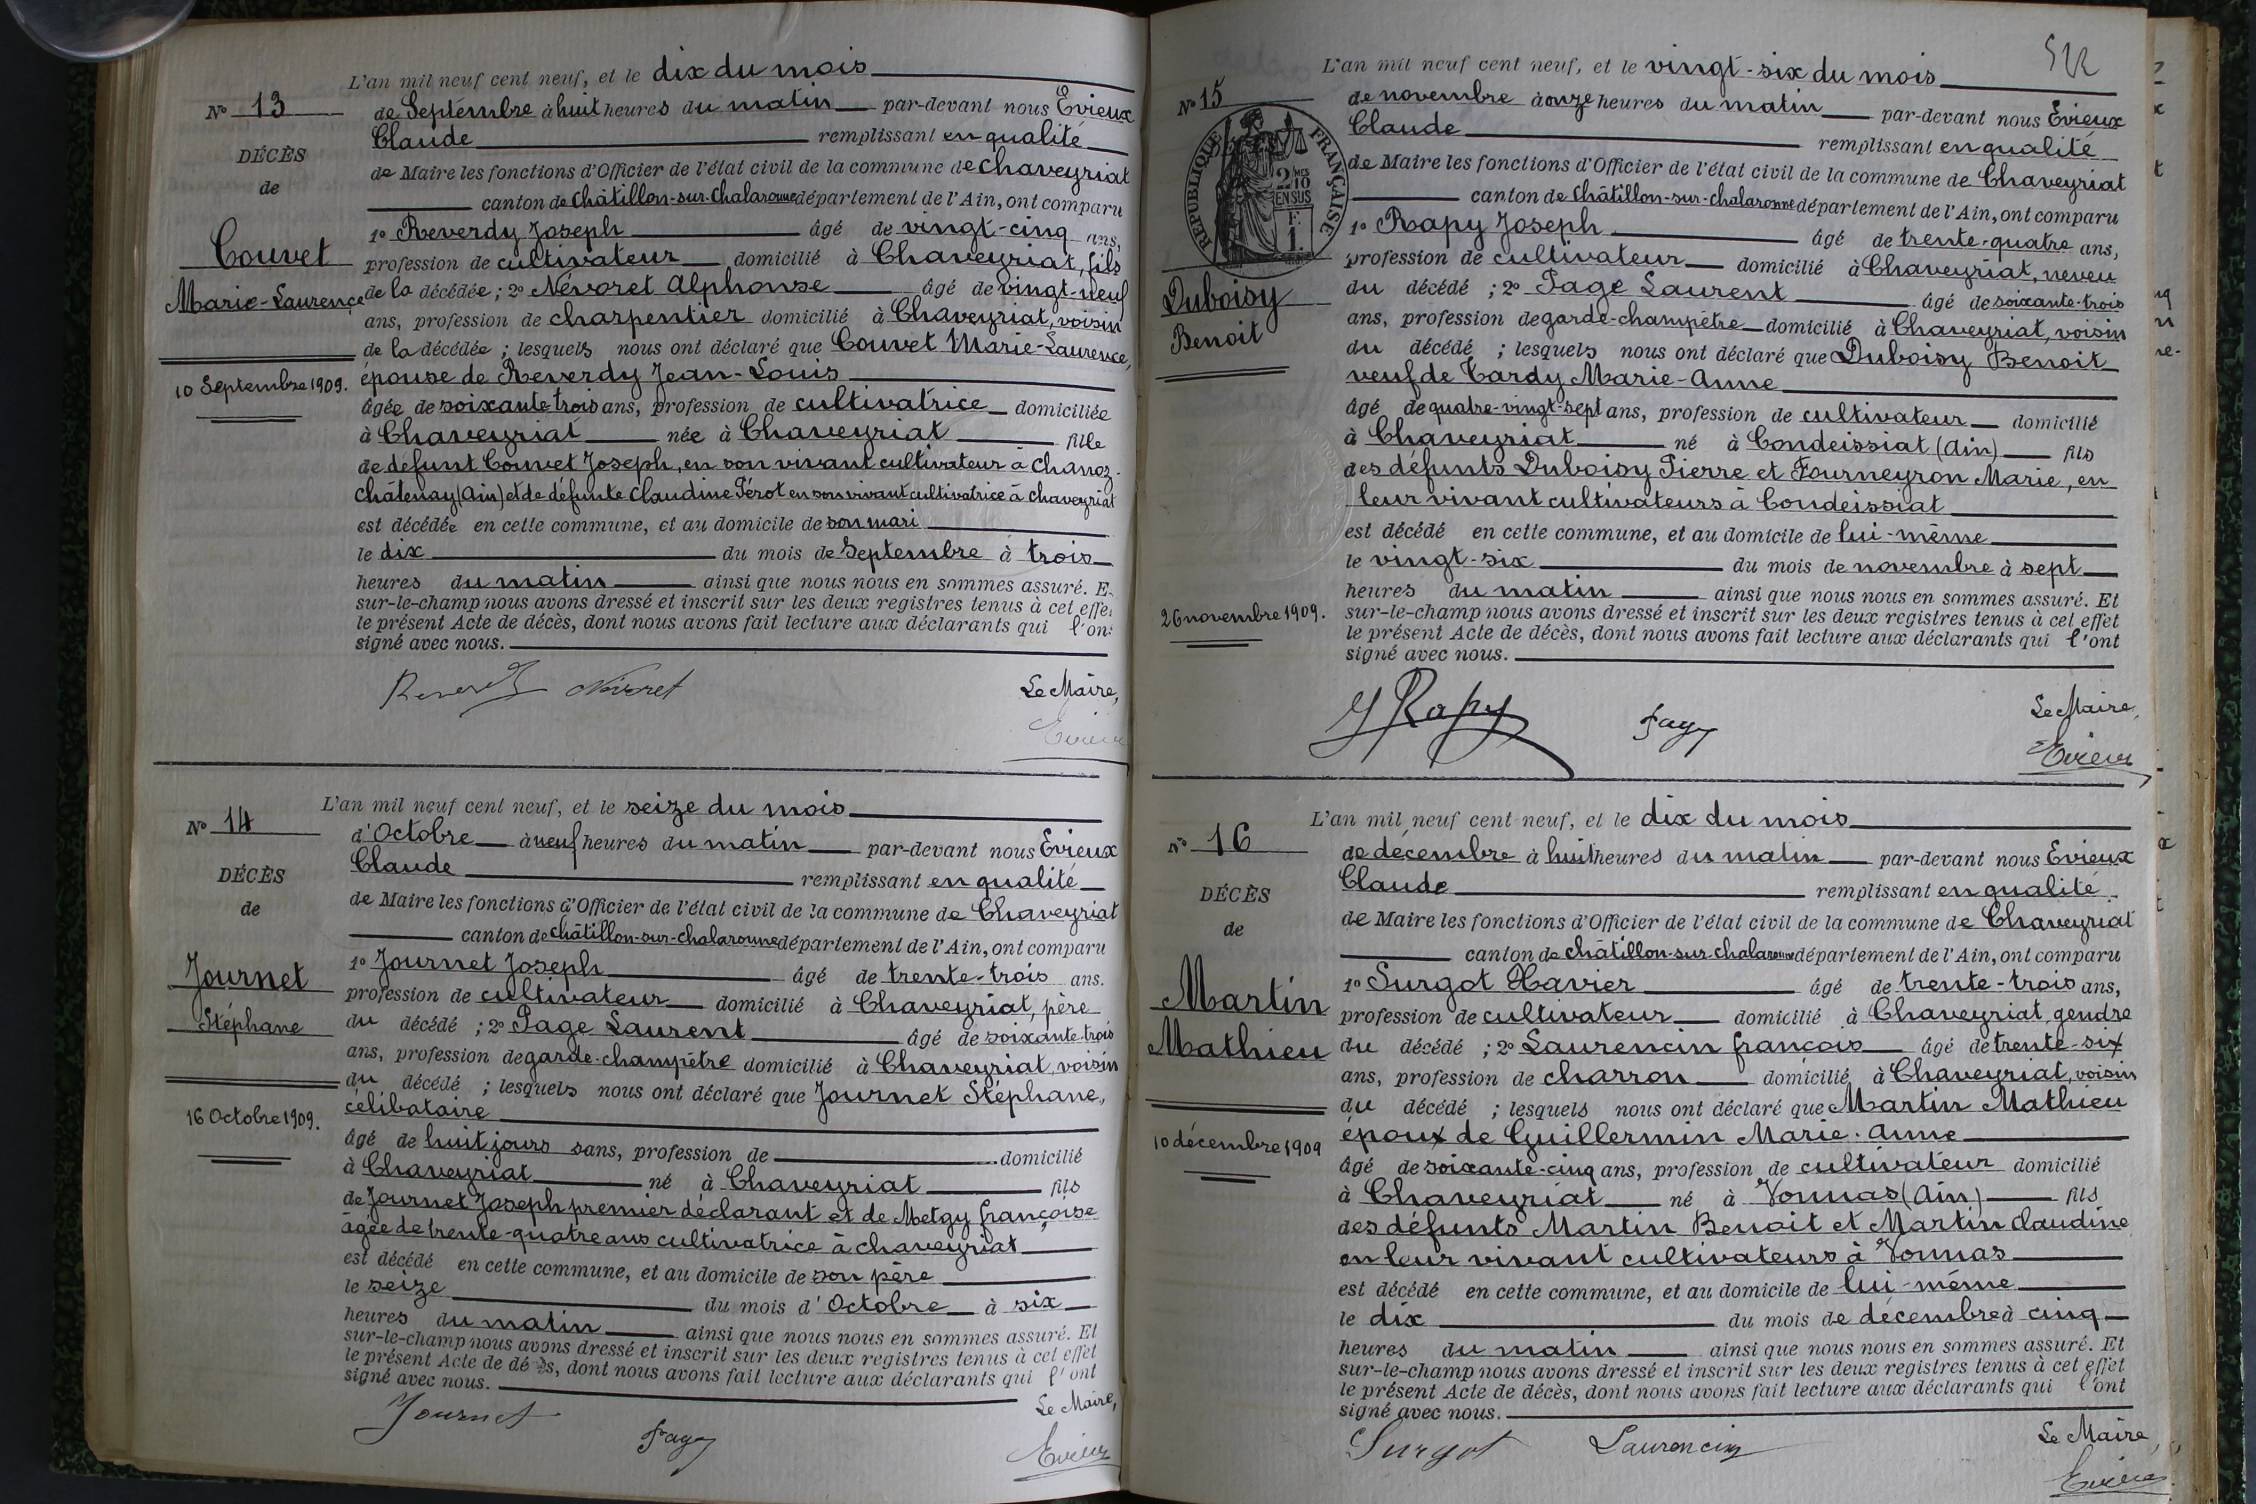 L'an mil neuf cent neuf, et le dix du mois
N° 13
de Septembre à huit heures du matin par-devant nous Evieux
Claude remplissant en qualité
DÉCÈS
de Maire les fonctions d'Officier de l'état civil de la commune de Chaveyriat
de
canton de Châtillon-sur-Chalaronne département de l'Ain, ont comparu
1° Reverdy Joseph âgé de vingt-cinq ans,
Couvet
profession de cultivateur domicilié à Chaveyriat, fils
Marie-Laurence
de la décédée ; 2° Névoret Alphonse âgé de vingt-neuf
ans, profession de charpentier domicilié à Chaveyriat, voisin
de la décédée ; lesquels nous ont déclaré que Couvet Marie-Laurence,
10 Septembre 1909.
épouse de Reverdy Jean-Louis
âgée de soixante trois ans, profession de cultivatrice domiciliée
à Chaveyriat née à Chaveyriat fille
de défunt Couvet Joseph, en son vivant cultivateur à Chanoz-
Châtenay (Ain) et de défunte Claudine Pérot en son vivant cultivatrice à Chaveyriat
est décédée en cette commune, et au domicile de son mari
le dix du mois de Septembre à trois
heures du matin ainsi que nous nous en sommes assuré. E
sur-le-champ nous avons dressé et inscrit sur les deux registres tenus à cet effe
le présent Acte de décès, dont nous avons fait lecture aux déclarants qui l'on
signé avec nous.
Reverdy Névoret Le Maire,
Evieux
L'an mil neuf cent neuf, et le seize du mois
N° 14
d'Octobre à neuf heures du matin par-devant nous Evieux
Claude remplissant en qualité
DÉCÈS
de Maire les fonctions d'Officier de l'état civil de la commune de Chaveyriat
de
canton de Châtillon-sur-Chalaronne département de l'Ain, ont comparu
1° Journet Joseph âgé de trente-trois ans.
Journet
profession de cultivateur domicilié à Chaveyriat, père
Stéphane
du décédé ; 2° Page Laurent âgé de soixante-trois
ans, profession de garde-champêtre domicilié à Chaveyriat, voisin
du décédé ; lesquels nous ont déclaré que Journet Stéphane,
16 Octobre 1909.
célibataire
âgé de huit jours sans, profession de domicilié
à Chaveyriat né à Chaveyriat fils
de Journet Joseph premier déclarant et de Metgy françoise
âgée de trente-quatre ans cultivatrice à Chaveyriat
est décédé en cette commune, et au domicile de son père
le seize du mois d'Octobre à six
heures du matin ainsi que nous nous en sommes assuré. Et
sur-le-champ nous avons dressé et inscrit sur les deux registres tenus à cet effet
le présent Acte de décès, dont nous avons fait lecture aux déclarants qui l'ont
signé avec nous.
Le Maire,
Journet Page Evieux
L'an mil neuf cent neuf, et le vingt-six du mois
N° 15
de novembre à onze heures du matin par-devant nous Evieux
Claude remplissant en qualité
RÉPUBLIQUE FRANÇAISE
2/10 MES
EN SUS
de Maire les fonctions d'Officier de l'état civil de la commune de Chaveyriat
canton de Châtillon-sur-Chalaronne département de l'Ain, ont comparu
1° Rapy Joseph âgé de trente-quatre ans,
profession de cultivateur domicilié à Chaveyriat, neveu
Duboisy
du décédé ; 2° Page Laurent âgé de soixante-trois
Benoit
ans, profession de garde-champêtre domicilié à Chaveyriat, voisin
du décédé ; lesquels nous ont déclaré que Duboisy Benoit
veuf de Tardy Marie-Anne
âgé de quatre-vingt-sept ans, profession de cultivateur domicilié
à Chaveyriat né à Condeissiat (Ain) fils
des défunts Duboisy Pierre et Fourneyron Marie, en
leur vivant cultivateurs à Condeissiat
est décédé en cette commune, et au domicile de lui-même
le vingt-six du mois de novembre à sept
heures du matin ainsi que nous nous en sommes assuré. Et
26 novembre 1909.
sur-le-champ nous avons dressé et inscrit sur les deux registres tenus à cet effet
le présent Acte de décès, dont nous avons fait lecture aux déclarants qui l'ont
signé avec nous.
J Rapy Page Le Maire,
Evieux
L'an mil neuf cent neuf, et le dix du mois
N° 16
de décembre à huit heures du matin par-devant nous Evieux
Claude remplissant en qualité
DÉCÈS
de Maire les fonctions d'Officier de l'état civil de la commune de Chaveyriat
de
canton de Châtillon-sur-Chalaronne département de l'Ain, ont comparu
1° Surgot Xavier âgé de trente-trois ans,
Martin
profession de cultivateur domicilié à Chaveyriat, gendre
Mathieu
du décédé ; 2° Laurencin françois âgé de trente-six
ans, profession de charron domicilié à Chaveyriat, voisin
du décédé ; lesquels nous ont déclaré que Martin Mathieu
10 décembre 1909
époux de Guillermin Marie-Anne
âgé de soixante-cinq ans, profession de cultivateur domicilié
à Chaveyriat né à Vonnas (Ain) fils
des défunts Martin Benoit et Martin Claudine
en leur vivant cultivateurs à Vonnas
est décédé en cette commune, et au domicile de lui-même
le dix du mois de décembre à cinq
heures du matin ainsi que nous nous en sommes assuré. Et
sur-le-champ nous avons dressé et inscrit sur les deux registres tenus à cet effet
le présent Acte de décès, dont nous avons fait lecture aux déclarants qui l'ont
signé avec nous.
Surgot Laurencin Le Maire,
Evieux